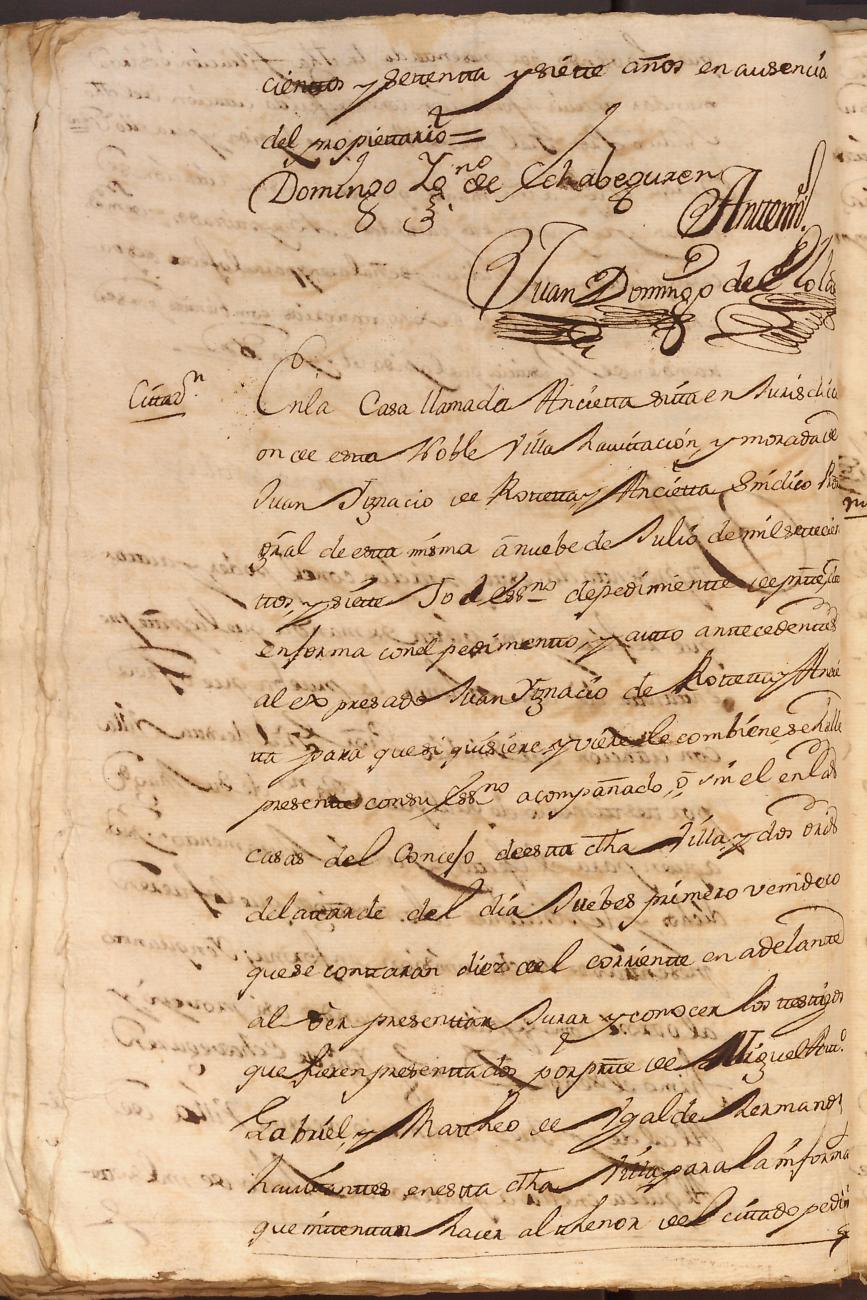 cientos y settenta y siette años en ausencia
del propiettario =
Domingo Ygn.º de Echabeguren
Antemi
Juan Domingo de
Cittaz.n
En la Casa llamada Ancietta sitta en Jurisdici
on de esta Noble Villa havitación, y morada de
Juan Ygnacio de Rottetta y Ancietta Sindico
gral de esta misma a nuebe de Julio de mil settecien
ttos, y siette Yo el essno de pedimiento de partte
en forma con el pedimentto, y autto anttecedentes
al expresado Juan Ygnacio de Rottetta y Ancie
tta para que si quisiere, y viere le combiene, se halle
presentte con su Essno acompañado, o sin el en las
casas del Concejo de esta dha Villa, y dos oras
de la tarde del día Juebes primero venidero
que se conttaran diez del corriente en adelante
al ver presenttar Jurar y conocer los testigos
que fueren presenttados por partte de Miguel Antt.º
Gabriel, y Matheo de Ygalde Hermanos
havittantes en esta dha Villa para la informa
que intentan hacer al thenor del cittado pedim